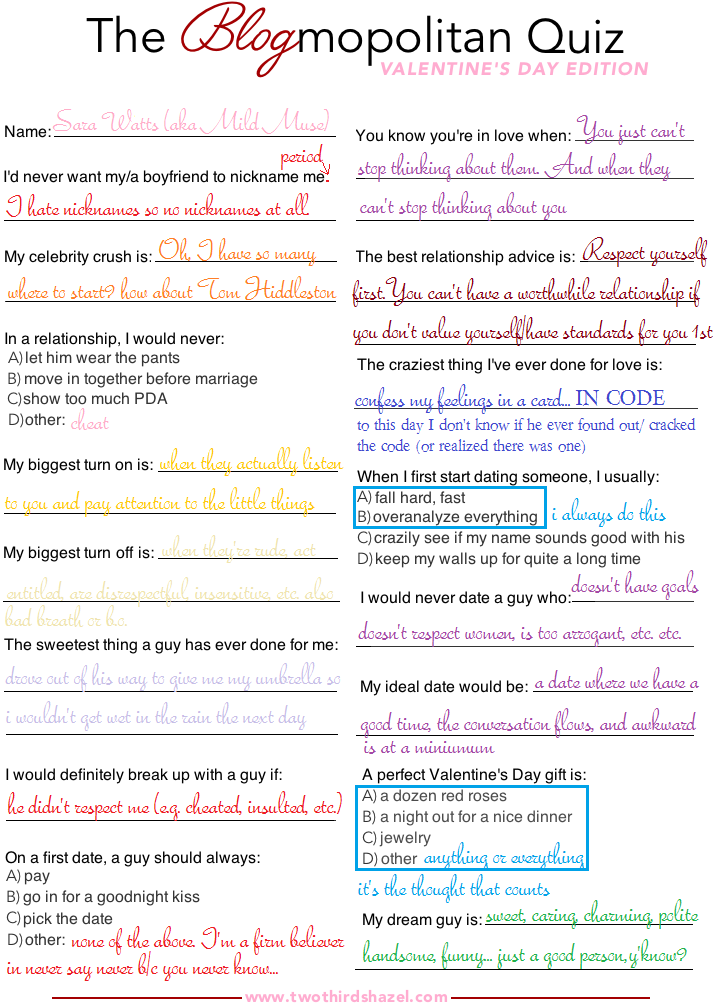 The Blogmopolitan Quiz
VALENTINE'S DAY EDITION
Name: Sara Watts (aka Mild Muse)
period
I'd never want my/a boyfriend to nickname me.
I hate nicknames so no nicknames at all.
My celebrity crush is: Oh, I have so many
where to start? how about Tom Hiddleston
In a relationship, I would never:
A) let him wear the pants
B) move in together before marriage
C) show too much PDA
D) other: cheat
My biggest turn on is: when they actually listen
to you and pay attention to the little things
My biggest turn off is: when they're rude, act
entitled, are disrespectful, insensitive, etc. also
bad breath or b.o.
The sweetest thing a guy has ever done for me:
drove out of his way to give me my umbrella so
i wouldn't get wet in the rain the next day
I would definitely break up with a guy if:
he didn't respect me (e.g. cheated, insulted, etc.)
On a first date, a guy should always:
A) pay
B) go in for a goodnight kiss
C) pick the date
D) other: none of the above. I'm a firm believer
in never say never b/c you never know...
You know you're in love when: You just can't
stop thinking about them. And when they
can't stop thinking about you
The best relationship advice is: Respect yourself
first. You can't have a worthwhile relationship if
you don't value yourself/have standards for you 1st
The craziest thing I've ever done for love is:
confess my feelings in a card... IN CODE
to this day I don't know if he ever found out/ cracked
the code (or realized there was one)
When I first start dating someone, I usually:
A) fall hard, fast
B) overanalyze everything i always do this
C) crazily see if my name sounds good with his
D) keep my walls up for quite a long time
I would never date a guy who: doesn't have goals
doesn't respect women, is too arrogant, etc. etc.
My ideal date would be: a date where we have a
good time, the conversation flows, and awkward
is at a miniumum
A perfect Valentine's Day gift is:
A) a dozen red roses
B) a night out for a nice dinner
C) jewelry
D) other anything or everything
it's the thought that counts
My dream guy is: sweet, caring, charming, polite
handsome, funny... just a good person, y'know?
www.twothirdshazel.com